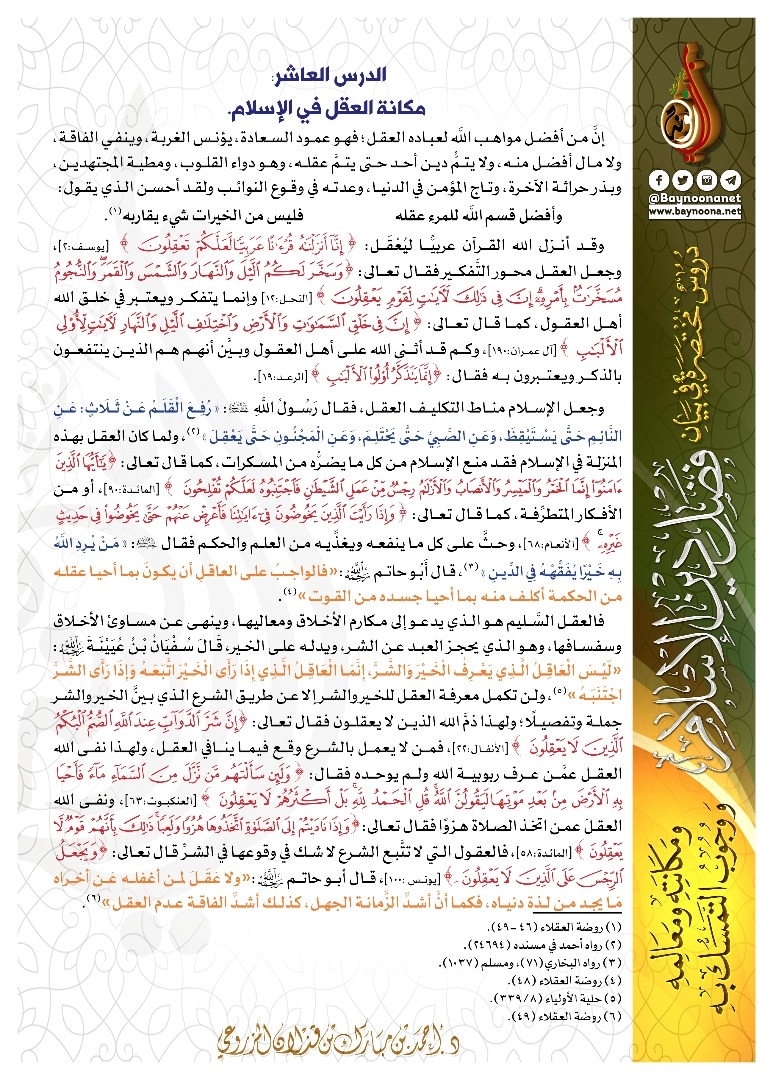 الدرس العاشر:
مكانة العقل في الإسلام.
إنَّ من أفضل مواهب الله لعباده العقل؛ فهو عمود السعادة، يؤنس الغربة، وينفي الفاقة،
ولا مال أفضل منه، ولا يتمُّ دين أحد حتى يتمَّ عقله، وهو دواء القلوب، ومطية المجتهدين،
وبذر حراثة الآخرة، وتاج المؤمن في الدنيا، وعدته في وقوع النوائب ولقد أحسن الذي يقول:
وأفضل قسم الله للمرء عقله فليس من الخيرات شيء يقاربه(١).
وقد أنزل الله القرآن عربيًّا ليُعْقَل: ﴿إِنَّا أَنزَلْنَٰهُ قُرْءَٰنًا عَرَبِيًّا لَّعَلَّكُمْ تَعْقِلُونَ﴾ [يوسف:٢]،
وجعل العقل محور التَّفكير فقال تعالى: ﴿وَسَخَّرَ لَكُمُ الَّيْلَ وَالنَّهَارَ وَالشَّمْسَ وَالْقَمَرَ وَالنُّجُومُ
مُسَخَّرَٰتٌ بِأَمْرِهِ إِنَّ فِي ذَٰلِكَ لَآيَٰتٍ لِّقَوْمٍ يَعْقِلُونَ﴾ [النحل:١٢] وإنما يتفكر ويعتبر في خلق الله
أهل العقول، كما قال تعالى: ﴿إِنَّ فِي خَلْقِ السَّمَٰوَٰتِ وَالْأَرْضِ وَاخْتِلَٰفِ الَّيْلِ وَالنَّهَارِ لَآيَٰتٍ لِّأُوْلِي
الْأَلْبَٰبِ﴾ [آل عمران:١٩٠]، وكم قد أثنى الله على أهل العقول وبيَّن أنهم هم الذين ينتفعون
بالذكر ويعتبرون به فقال: ﴿إِنَّمَا يَتَذَكَّرُ أُوْلُوا الْأَلْبَٰبِ﴾ [الرعد:١٩].
وجعل الإسلام مناط التكليف العقل، فقال رَسُولُ اللهِ ﷺ: «رُفِعَ الْقَلَمُ عَنْ ثَلَاثٍ: عَنِ
النَّائِمِ حَتَّى يَسْتَيْقِظَ، وَعَنِ الصَّبِيِّ حَتَّى يَحْتَلِمَ، وَعَنِ الْمَجْنُونِ حَتَّى يَعْقِلَ»(٢)، ولما كان العقل بهذه
المنزلة في الإسلام فقد منع الإسلام من كل ما يضرُّه من المسكرات، كما قال تعالى: ﴿يَٰٓأَيُّهَا الَّذِينَ
ءَامَنُوٓا إِنَّمَا الْخَمْرُ وَالْمَيْسِرُ وَالْأَنصَابُ وَالْأَزْلَٰمُ رِجْسٌ مِّنْ عَمَلِ الشَّيْطَٰنِ فَاجْتَنِبُوهُ لَعَلَّكُمْ تُفْلِحُونَ﴾ [المائدة:٩٠]، أو من
الأفكار المتطرِّفة، كما قال تعالى: ﴿وَإِذَا رَأَيْتَ الَّذِينَ يَخُوضُونَ فِيٓ ءَايَٰتِنَا فَأَعْرِضْ عَنْهُمْ حَتَّىٰ يَخُوضُوا فِي حَدِيثٍ
غَيْرِهِ﴾ [الأنعام:٦٨]، وحثَّ على كل ما ينفعه ويغذِّيه من العلم والحكم فقال ﷺ: «مَنْ يُرِدِ اللهُ
بِهِ خَيْرًا يُفَقِّهْهُ فِي الدِّينِ»(٣)، قال أَبُو حاتم رحمه الله: «فالواجبُ على العاقلِ أن يكونَ بما أحيا عقله
من الحكمة أكلف منه بما أحيا جسده من القوت»(٤).
فالعقل السَّليم هو الذي يدعو إلى مكارم الأخلاق ومعاليها، وينهى عن مساوئ الأخلاق
وسفسافها، وهو الذي يحجز العبد عن الشر، ويدله على الخير، قَالَ سُفْيَانُ بْنُ عُيَيْنَةَ رحمه الله:
«لَيْسَ الْعَاقِلُ الَّذِي يَعْرِفُ الْخَيْرَ وَالشَّرَّ، إِنَّمَا الْعَاقِلُ الَّذِي إِذَا رَأَى الْخَيْرَ اتَّبَعَهُ وَإِذَا رَأَى الشَّرَّ
اجْتَنَبَهُ»(٥)، ولن تكمل معرفة العقل للخير والشر إلا عن طريق الشرع الذي بينَّ الخير والشر
جملة وتفصيلًا؛ ولهذا ذمَّ الله الذين لا يعقلون فقال تعالى: ﴿إِنَّ شَرَّ الدَّوَآبِّ عِندَ اللَّهِ الصُّمُّ الْبُكْمُ
الَّذِينَ لَا يَعْقِلُونَ﴾ [الأنفال:٢٢]، فمن لا يعمل بالشرع وقع فيما ينافي العقل، ولهذا نفى الله
العقل عمَّن عرف ربوبية الله ولم يوحده فقال: ﴿وَلَئِن سَأَلْتَهُم مَّن نَّزَّلَ مِنَ السَّمَآءِ مَآءً فَأَحْيَا
بِهِ الْأَرْضَ مِنۢ بَعْدِ مَوْتِهَا لَيَقُولُنَّ اللَّهُ قُلِ الْحَمْدُ لِلَّهِ بَلْ أَكْثَرُهُمْ لَا يَعْقِلُونَ﴾ [العنكبوت:٦٣]، ونفى الله
العقلَ عمن اتخذ الصلاة هزوًا فقال تعالى: ﴿وَإِذَا نَادَيْتُمْ إِلَى الصَّلَوٰةِ اتَّخَذُوهَا هُزُوًا وَلَعِبًا ذَٰلِكَ بِأَنَّهُمْ قَوْمٌ لَّا
يَعْقِلُونَ﴾ [المائدة:٥٨]، فالعقول التي لا تتَّبع الشرع لا شك في وقوعها في الشرِّ قال تعالى: ﴿وَيَجْعَلُ
الرِّجْسَ عَلَى الَّذِينَ لَا يَعْقِلُونَ﴾ [يونس:١٠٠]، قال أبو حاتم رحمه الله: «ولا عَقَلَ لمن أغفله عن أخراه
مَا يجد من لذة دنياه، فكما أنَّ أشدَّ الزَّمانة الجهل، كذلك أشدَّ الفاقة عدم العقل»(٦).
(١) روضة العقلاء (٤٦-٤٩).
(٢) رواه أحمد في مسنده (٢٤٦٩٤).
(٣) رواه البخاري (٧١)، ومسلم (١٠٣٧).
(٤) روضة العقلاء (٤٨).
(٥) حلية الأولياء (٣٣٩/٨).
(٦) روضة العقلاء (٤٩).
د. أحمد بن مبارك بن قذلان المزروعي
بينونة
@Baynoonanet
www.baynoona.net
دروس مختصرة في بيان
فضل دين الإسلام
ومكانته ومعالمه
ووجوب التمسك به